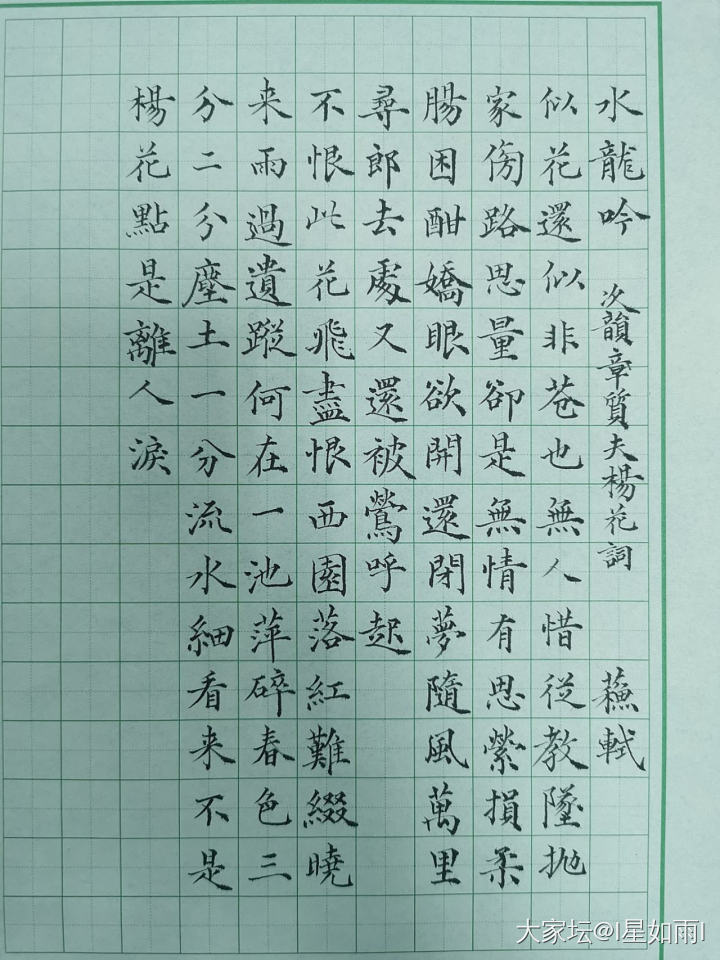 水龍吟 次韻章質夫楊花詞 蘓軾
似花還似非苍也無人惜從教墜抛
家傍路思量卻是無情有思縈損柔
腸困酣嬌眼欲開還閉夢隨風萬里
尋郎去處又還被鶯呼起
不恨此花飛盡恨西園落紅難綴曉
来雨過遺蹤何在一池萍碎春色三
分二分塵土一分流水細看来不是
楊花點是離人淚
大家坛@I星如雨I